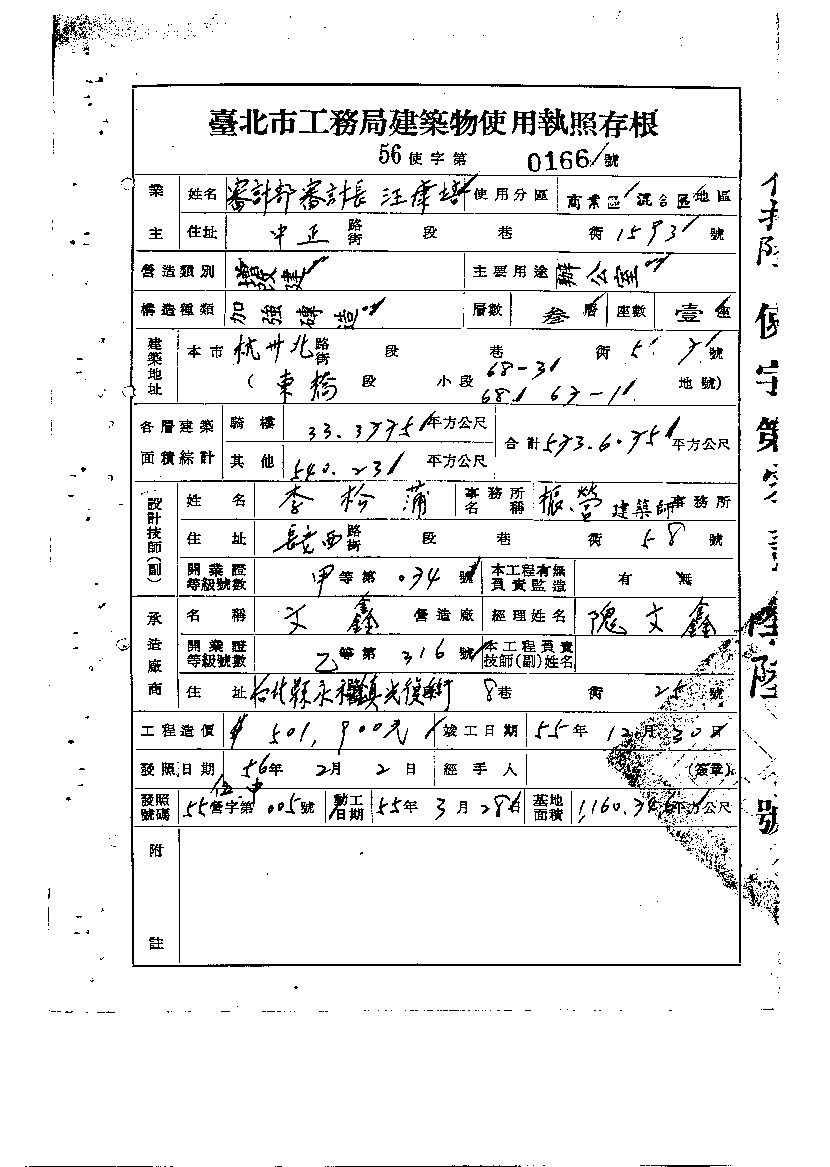 臺北市工務局建築物使用執照存根
56使字第 0166 號
業主 姓名 審計部審計長汪康培 使用分區 商業區 混合區 地區
住址 中正 路街 段 巷 街 1593 號
營造類別 增設建 主要用途 辦公室
構造種類 加強磚造 層數 叁層 座數 壹座
建築地址 本市 杭州北 路街 段 巷 街 5 號
(東橋段 小段 68-3 68 67-1 地號)
各層建築面積綜計 騎樓 33.3775 平方公尺 合計 573.6075 平方公尺
其他 540.23 平方公尺
設計技師(副) 姓名 李松蒲 事務所名稱 振營建築師事務所
住址 長安西 路街 段 巷 街 58 號
開業證等級號數 甲等第 034 號 本工程有無負責監造 有 無
承造廠商 名稱 文鑫 營造廠 經理姓名 隗文鑫
開業證等級號數 乙等第 316 號 本工程負責技師(副)姓名
住址 台北縣永和鎮光復街 8巷 街 25 號
工程造價 $501,900元 竣工日期 55年12月30日
發照日期 56年2月2日 經手人 (簽章)
發照號碼 55營字第 005 號 動工日期 55年3月28日 基地面積 1,160.34 平方公尺
附註
使字第零壹陸陸號